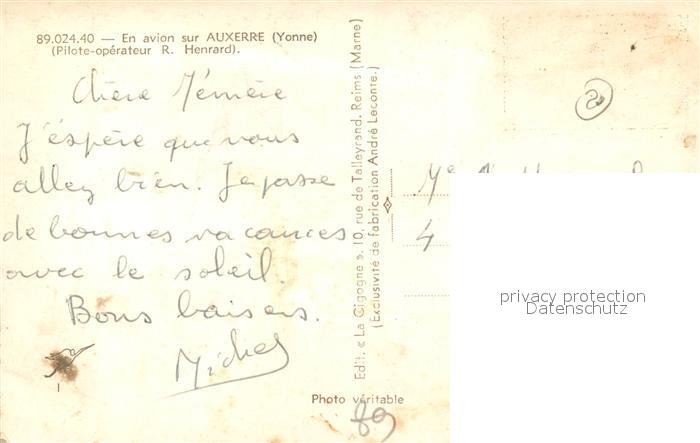 89.024.40 — En avion sur AUXERRE (Yonne)
(Pilote-opérateur R. Henrard).
Chère Mémère
J'éspère que vous
allez bien. Je passe
de bonnes vacances
avec le soleil.
Bons baisers.
Michel
Edit. « La Cigogne ». 10, rue de Talleyrand. Reims (Marne)
(Exclusivité de fabrication André Leconte.)
Photo véritable
89
4
privacy protection
Datenschutz